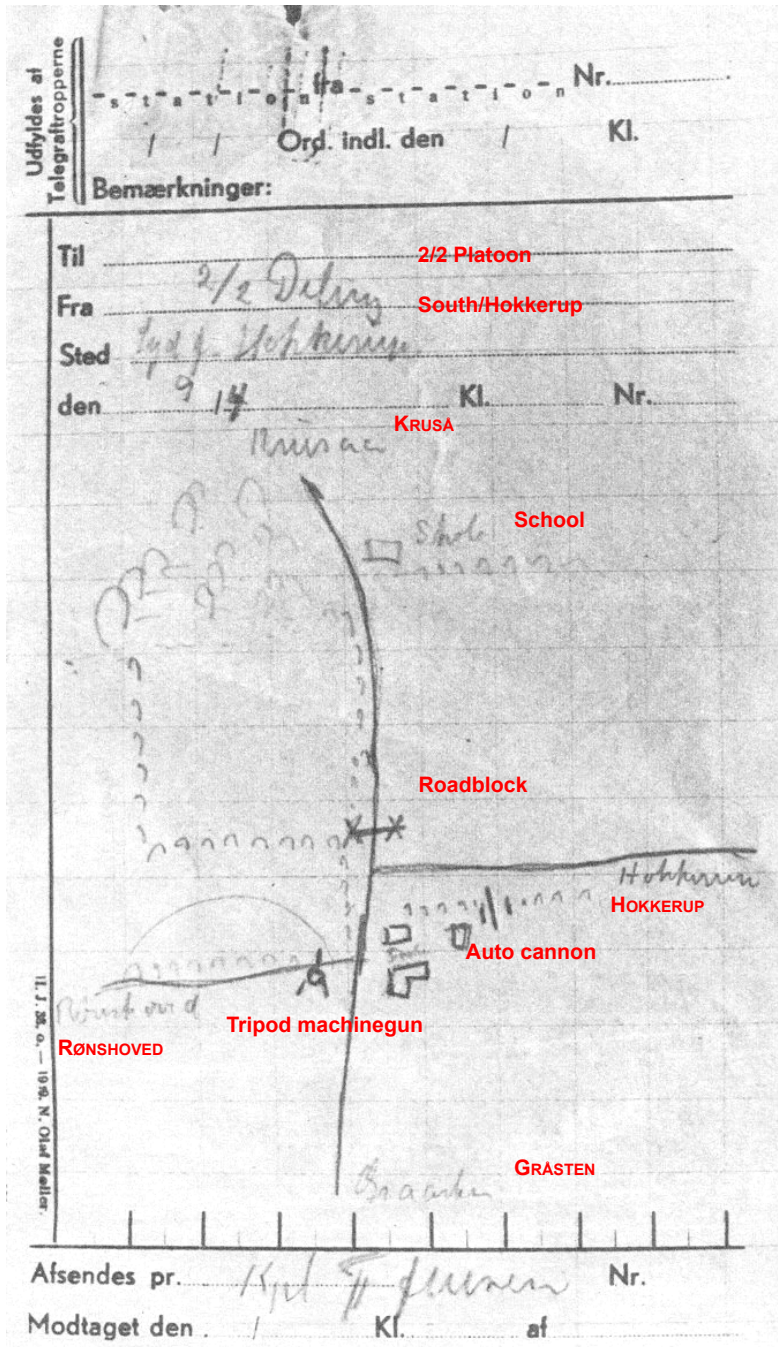 Udfyldes af
Telegraftropperne
station fra station Nr.
/ / Ord. indl. den / Kl.
Bemærkninger:
Til
2/2 Platoon
Fra 2/2 Deling
South/Hokkerup
Sted Syd f. Hokkerup
den 9/4 Kl. Nr.
KRUSÅ
Krusaa
School
Skole
Roadblock
Hokkerup
HOKKERUP
Auto cannon
Tripod machinegun
Rønshoved
RØNSHOVED
GRÅSTEN
Graasten
N. Olaf Møller.
Afsendes pr. Kpl Nr.
Modtaget den / Kl. af